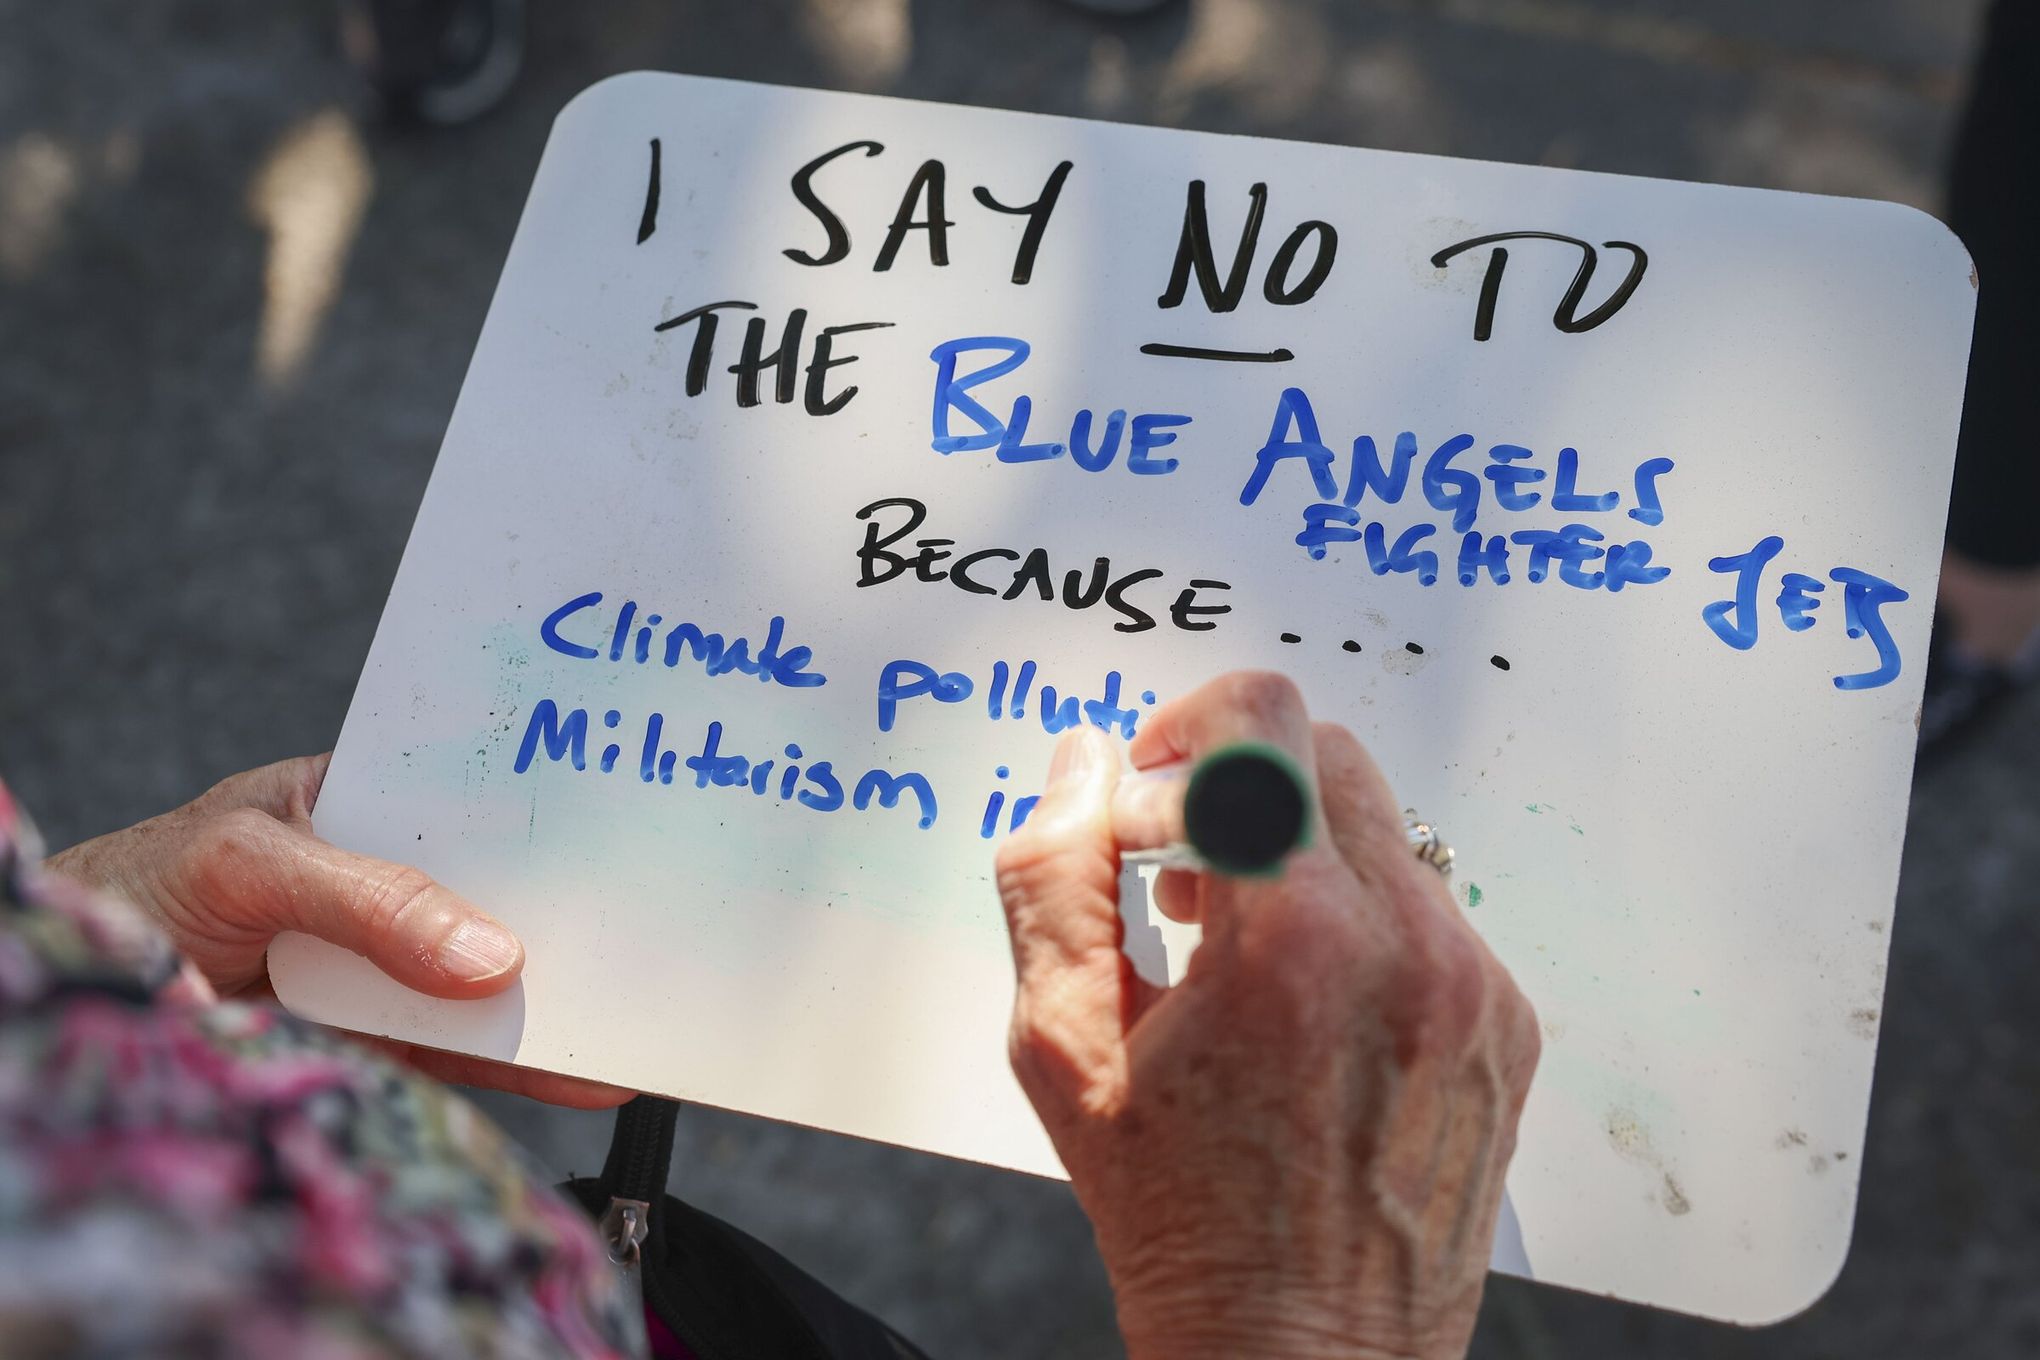 I SAY NO TO
THE BLUE ANGELS
FIGHTER JETS
BECAUSE ....
Climate polluti
Militarism in